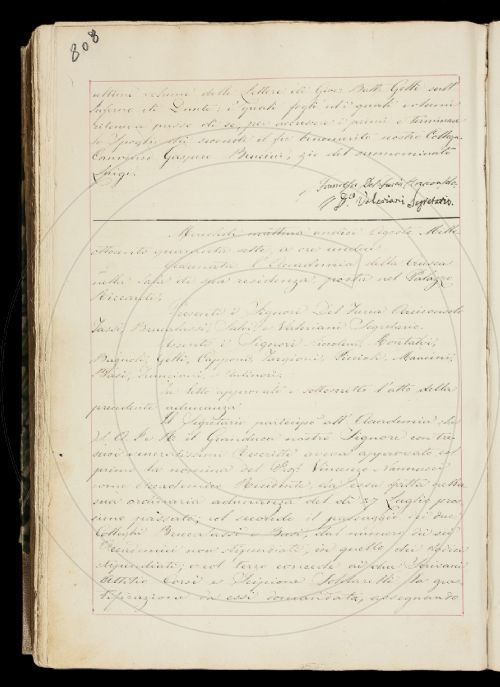 808
ultimi volumi delle Lettere di Gio: Batt. Gelli sull'
Inferno di Dante: i quali fogli ed i quali volumi
riteneva presso di se, per
lo spoglio, che secondo il fù benemerito nostro Collega
Canonico Gaspero Bencini, zio del summominato
Luigi.
Francesco Del Furia Arciconsolo
D. Valeriani Segretario
Mercoledì mattina undici Agosto Mille
ottocento quaranta sette, a ore undici
Adunata l'Accademia della Crusca
nella Sala di sua residenza, posta nel Palazzo
Riccardi;
Presenti i Signori Del Furia Arciconsolo
Tassi, Brucalassi, Salvi e Valeriani Segretario.
Assenti i Signori Niccolini, Montalvi,
Bagnoli, Gelli, Capponi, Targioni, Piccioli, Mancini,
Basi, Franceschi, e Parlatore.
Fu letto approvato e sottoscritto l'atto della
precedente adunanza.
Il Segretario partecipò all'Accademia, che
S. A. I. e R. il Granduca nostro Signore con tre
suoi veneratissimi Rescritti aveva approvato col
primo la nomina del Prof. Vincenzo Nannucci
come Accademico Residente, da essa fatta nella
sua ordinaria adunanza del dì 27 Luglio pros
simo passato; col secondo il passaggio dei due
Colleghi Brucalassi e Basi, dal numero di
Accademici non stipendiati, in quello dei
stipendiati; e col terzo concede ai due Scrivani
Attilio Corsi e Scipione Fossarelli la gra
tificazione da essi domandata, assegnando